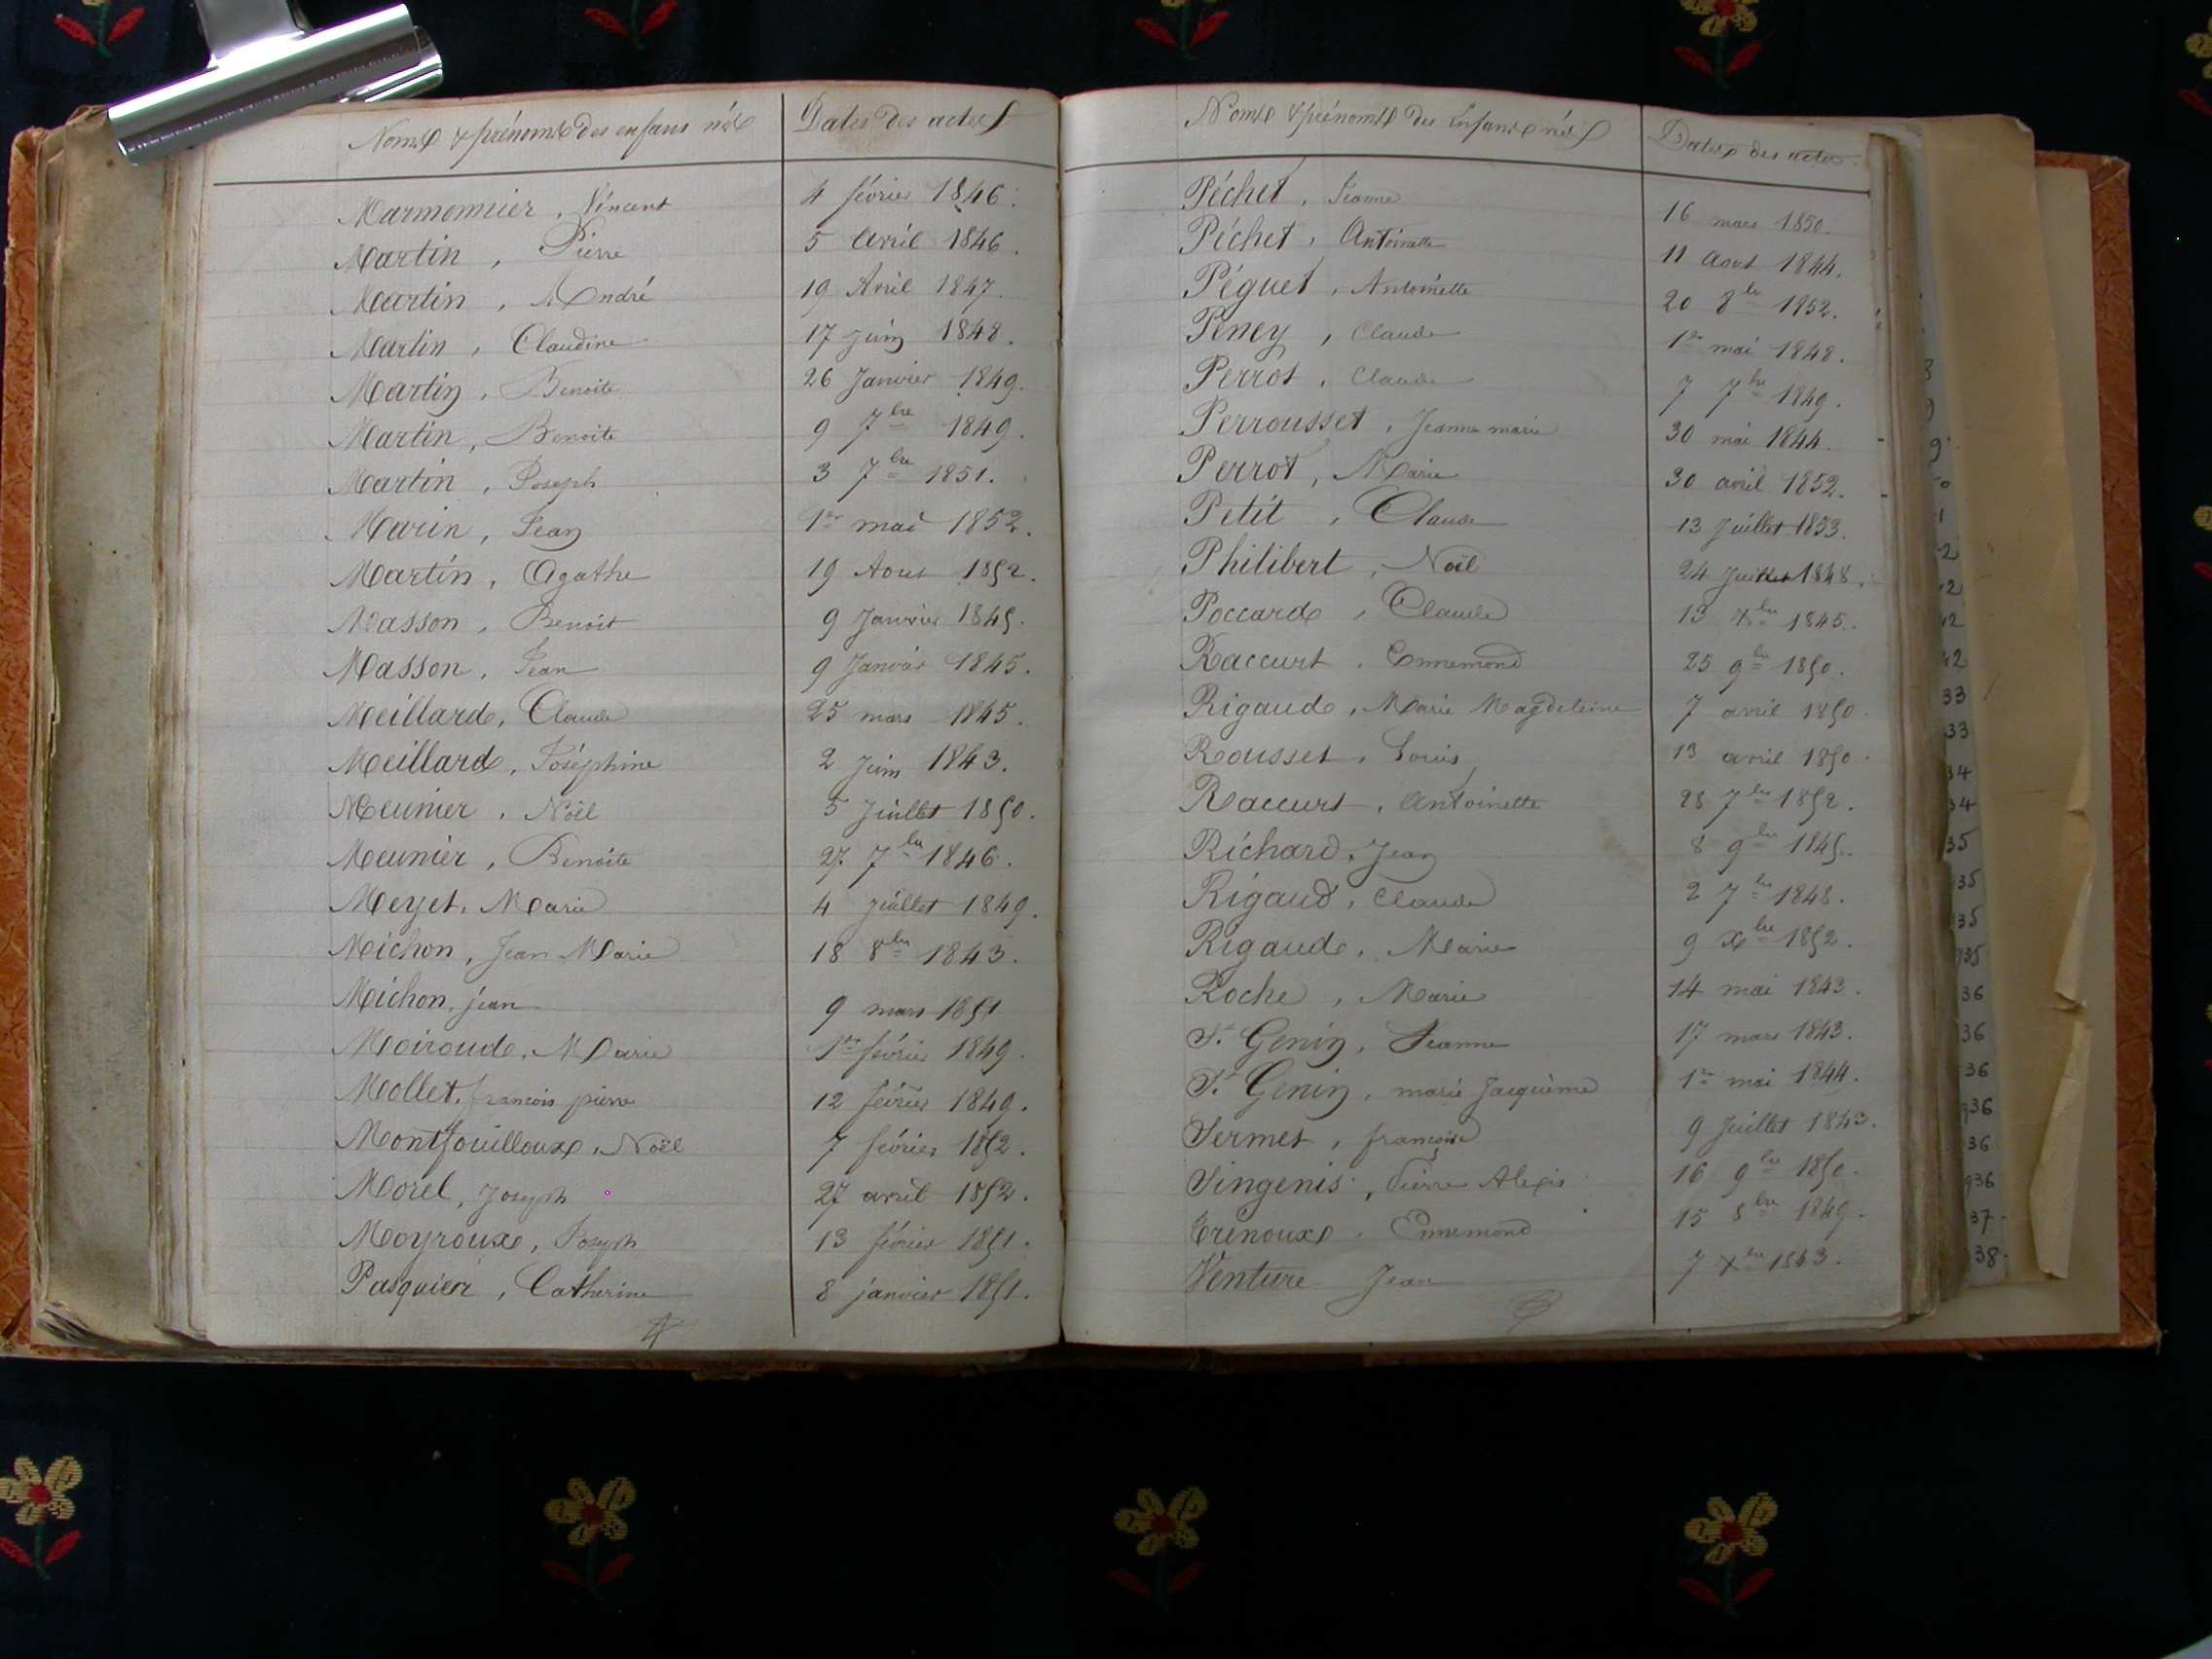 Noms & prénoms des enfans nés
Dates des actes
Marmonnier, Vincent 4 février 1846.
Martin, Pierre 5 Avril 1846.
Martin, André 19 Avril 1847.
Martin, Claudine 17 juin 1848.
Martin, Benoite 26 Janvier 1849.
Martin, Benoite 9 7bre 1849.
Martin, Joseph 3 7bre 1851.
Marin, Jean 1er mai 1852.
Martin, Agathe 19 Aout 1852.
Masson, Benoit 9 Janvier 1845.
Masson, Jean 9 Janvier 1845.
Meillard, Claude 25 mars 1845.
Meillard, Joséphine 2 Juin 1843.
Meunier, Noël 5 Juillet 1850.
Meunier, Benoite 27 7bre 1846.
Meyet, Marie 4 juillet 1849.
Michon, Jean Marie 18 8bre 1843.
Michon, jean 9 mars 1851
Moiroud, Marie 1er février 1849.
Mollet, francois pierre 12 février 1849.
Montfouilloux, Noël 7 février 1852.
Morel, Joseph 27 avril 1852.
Moyroux, Joseph 13 février 1851.
Pasquier, Catherine 8 janvier 1851.
Noms & prénoms des Enfans nés
Dates des actes.
Péchet, Jeanne 16 mars 1850.
Péchet, Antoinette 11 Aout 1844.
Péguet, Antoinette 20 8bre 1852.
Peney, Claude 1er mai 1848.
Perrot, Claude 7 7bre 1849.
Perrousset, Jeanne marie 30 mai 1844.
Perrot, Marie 30 avril 1852.
Petit, Claude 13 Juillet 1853.
Philibert, Noël 24 Juillet 1848.
Poccard, Claude 13 Xbre 1845.
Raccurt, Ennemond 25 9bre 1850.
Rigaud, Marie Magdeleine 7 avril 1850.
Rousset, Louis 13 avril 1850.
Raccurt, Antoinette 28 7bre 1852.
Richard, Jean 8 9bre 1845.
Rigaud, Claude 2 7bre 1848.
Rigaud, Marie 9 Xbre 1852.
Roche, Marie 14 mai 1843.
St. Genin, Jeanne 17 mars 1843.
St. Genin, marie Jacquème 1er mai 1844.
Sermet, françoise 9 Juillet 1843.
Singenis, Pierre Alexis 16 9bre 1850.
Trenoux, Ennemond 15 8bre 1849.
Venture Jean 7 Xbre 1843.